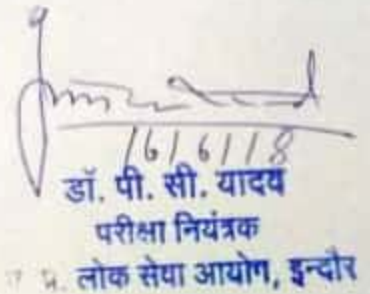 16/6/18
डॉ. पी. सी. यादव
परीक्षा नियंत्रक
प्र. लोक सेवा आयोग, इन्दौर